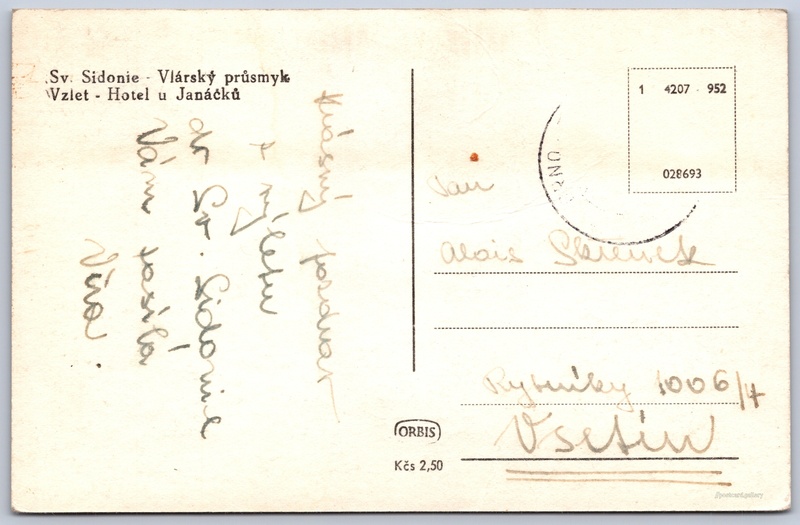 Sv. Sidonie - Vlárský průsmyk
Vzlet - Hotel u Janáčků
Krásný pozdrav
z výletu
do Sv. Sidonie
Vám posílá
Věra.
1 4207 952
028693
RNO
Pan
Alois
Rybníky 1006/4
Vsetín
ORBIS
Kčs 2,50